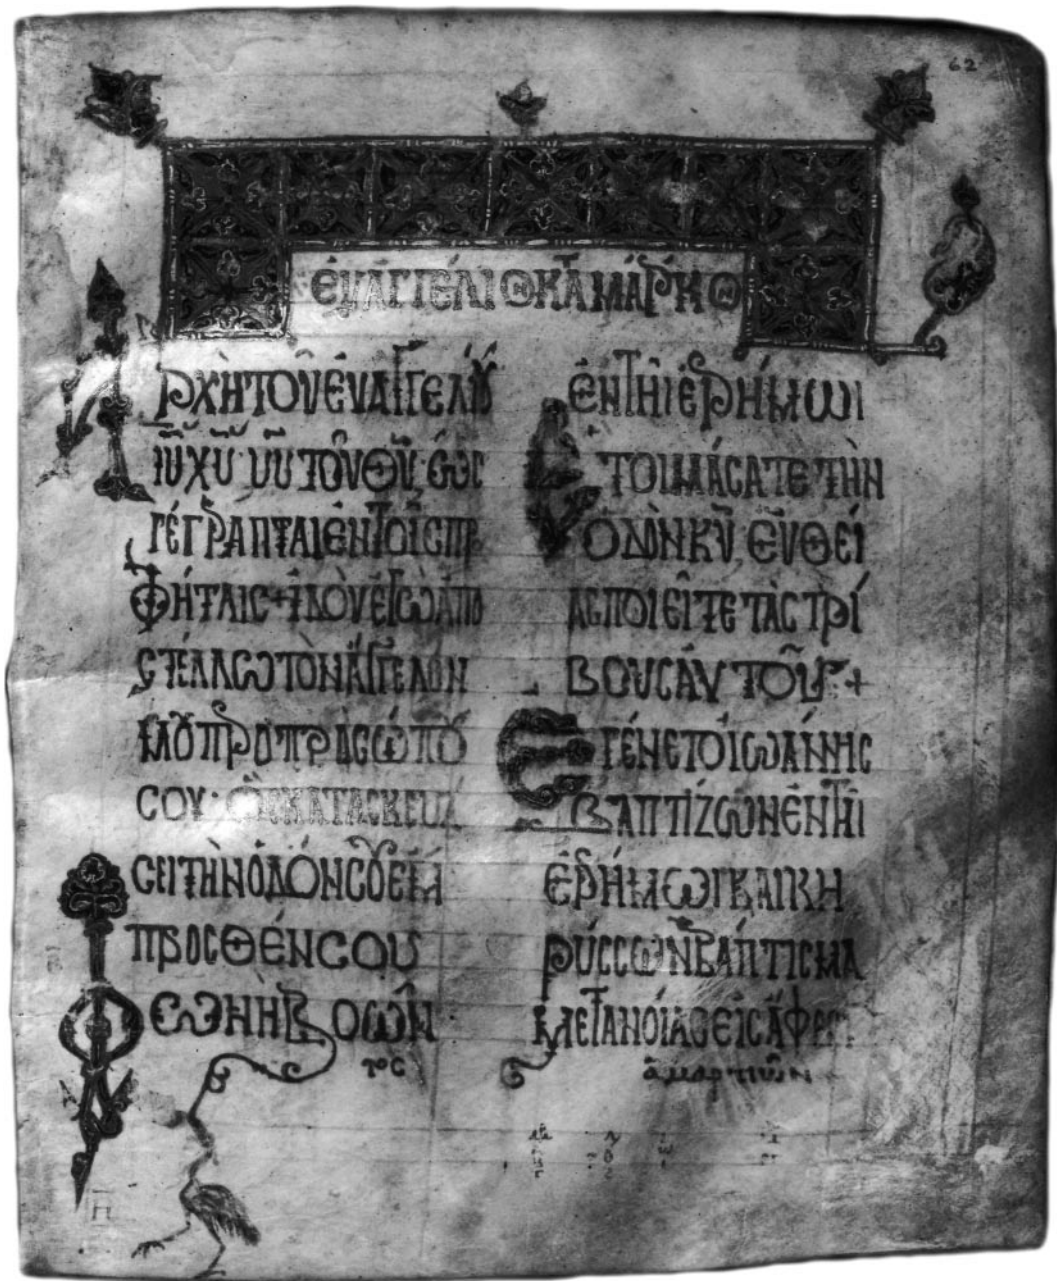 62
ΕΥΑΓΓΕΛΙΟΝ ΚΑΤΑ ΜΑΡΚΟΝ
ΑΡΧῊ ΤΟΥ͂ ΕΥΑΓΓΕΛΙΟΥ
ΙΥ ΧΥ ΥΥ ΤΟΥ ΘΥ· ΩΣ
ΓΕΓΡΑΠΤΑΙ ΕΝ ΤΟΙΣ ΠΡΟ
ΦΗΤΑΙΣ + ΙΔΟΥ ΕΓΩ ΑΠΟ
ΣΤΕΛΛΩ ΤΟΝ ΑΓΓΕΛΟΝ
ΜΟΥ ΠΡΟ ΠΡΟΣΩΠΟΥ
ΣΟΥ· ΟΣ ΚΑΤΑΣΚΕΥΑ
ΣΕΙ ΤΗΝ ΟΔΟΝ ΣΟΥ ΕΜ
ΠΡΟΣΘΕΝ ΣΟΥ
ΦΩΝΗ ΒΟΩΝ
ΤΟΣ
ΕΝ ΤΗΙ ΕΡΗΜΩΙ
ΕΤΟΙΜΑΣΑΤΕ ΤΗΝ
ΟΔΟΝ ΚΥ, ΕΥΘΕΙ
ΑΣ ΠΟΙΕΙΤΕ ΤΑΣ ΤΡΙ
ΒΟΥΣ ΑΥΤΟΥ +
ΕΓΕΝΕΤΟ ΙΩΑΝΝΗΣ
ΒΑΠΤΙΖΩΝ ΕΝ ΤΗΙ
ΕΡΗΜΩΙ ΚΑΙ ΚΗ
ΡΥΣΣΩΝ ΒΑΠΤΙΣΜΑ
ΜΕΤΑΝΟΙΑΣ ΕΙΣ ΑΦΕΣΙΝ
ἁμαρτιῶν